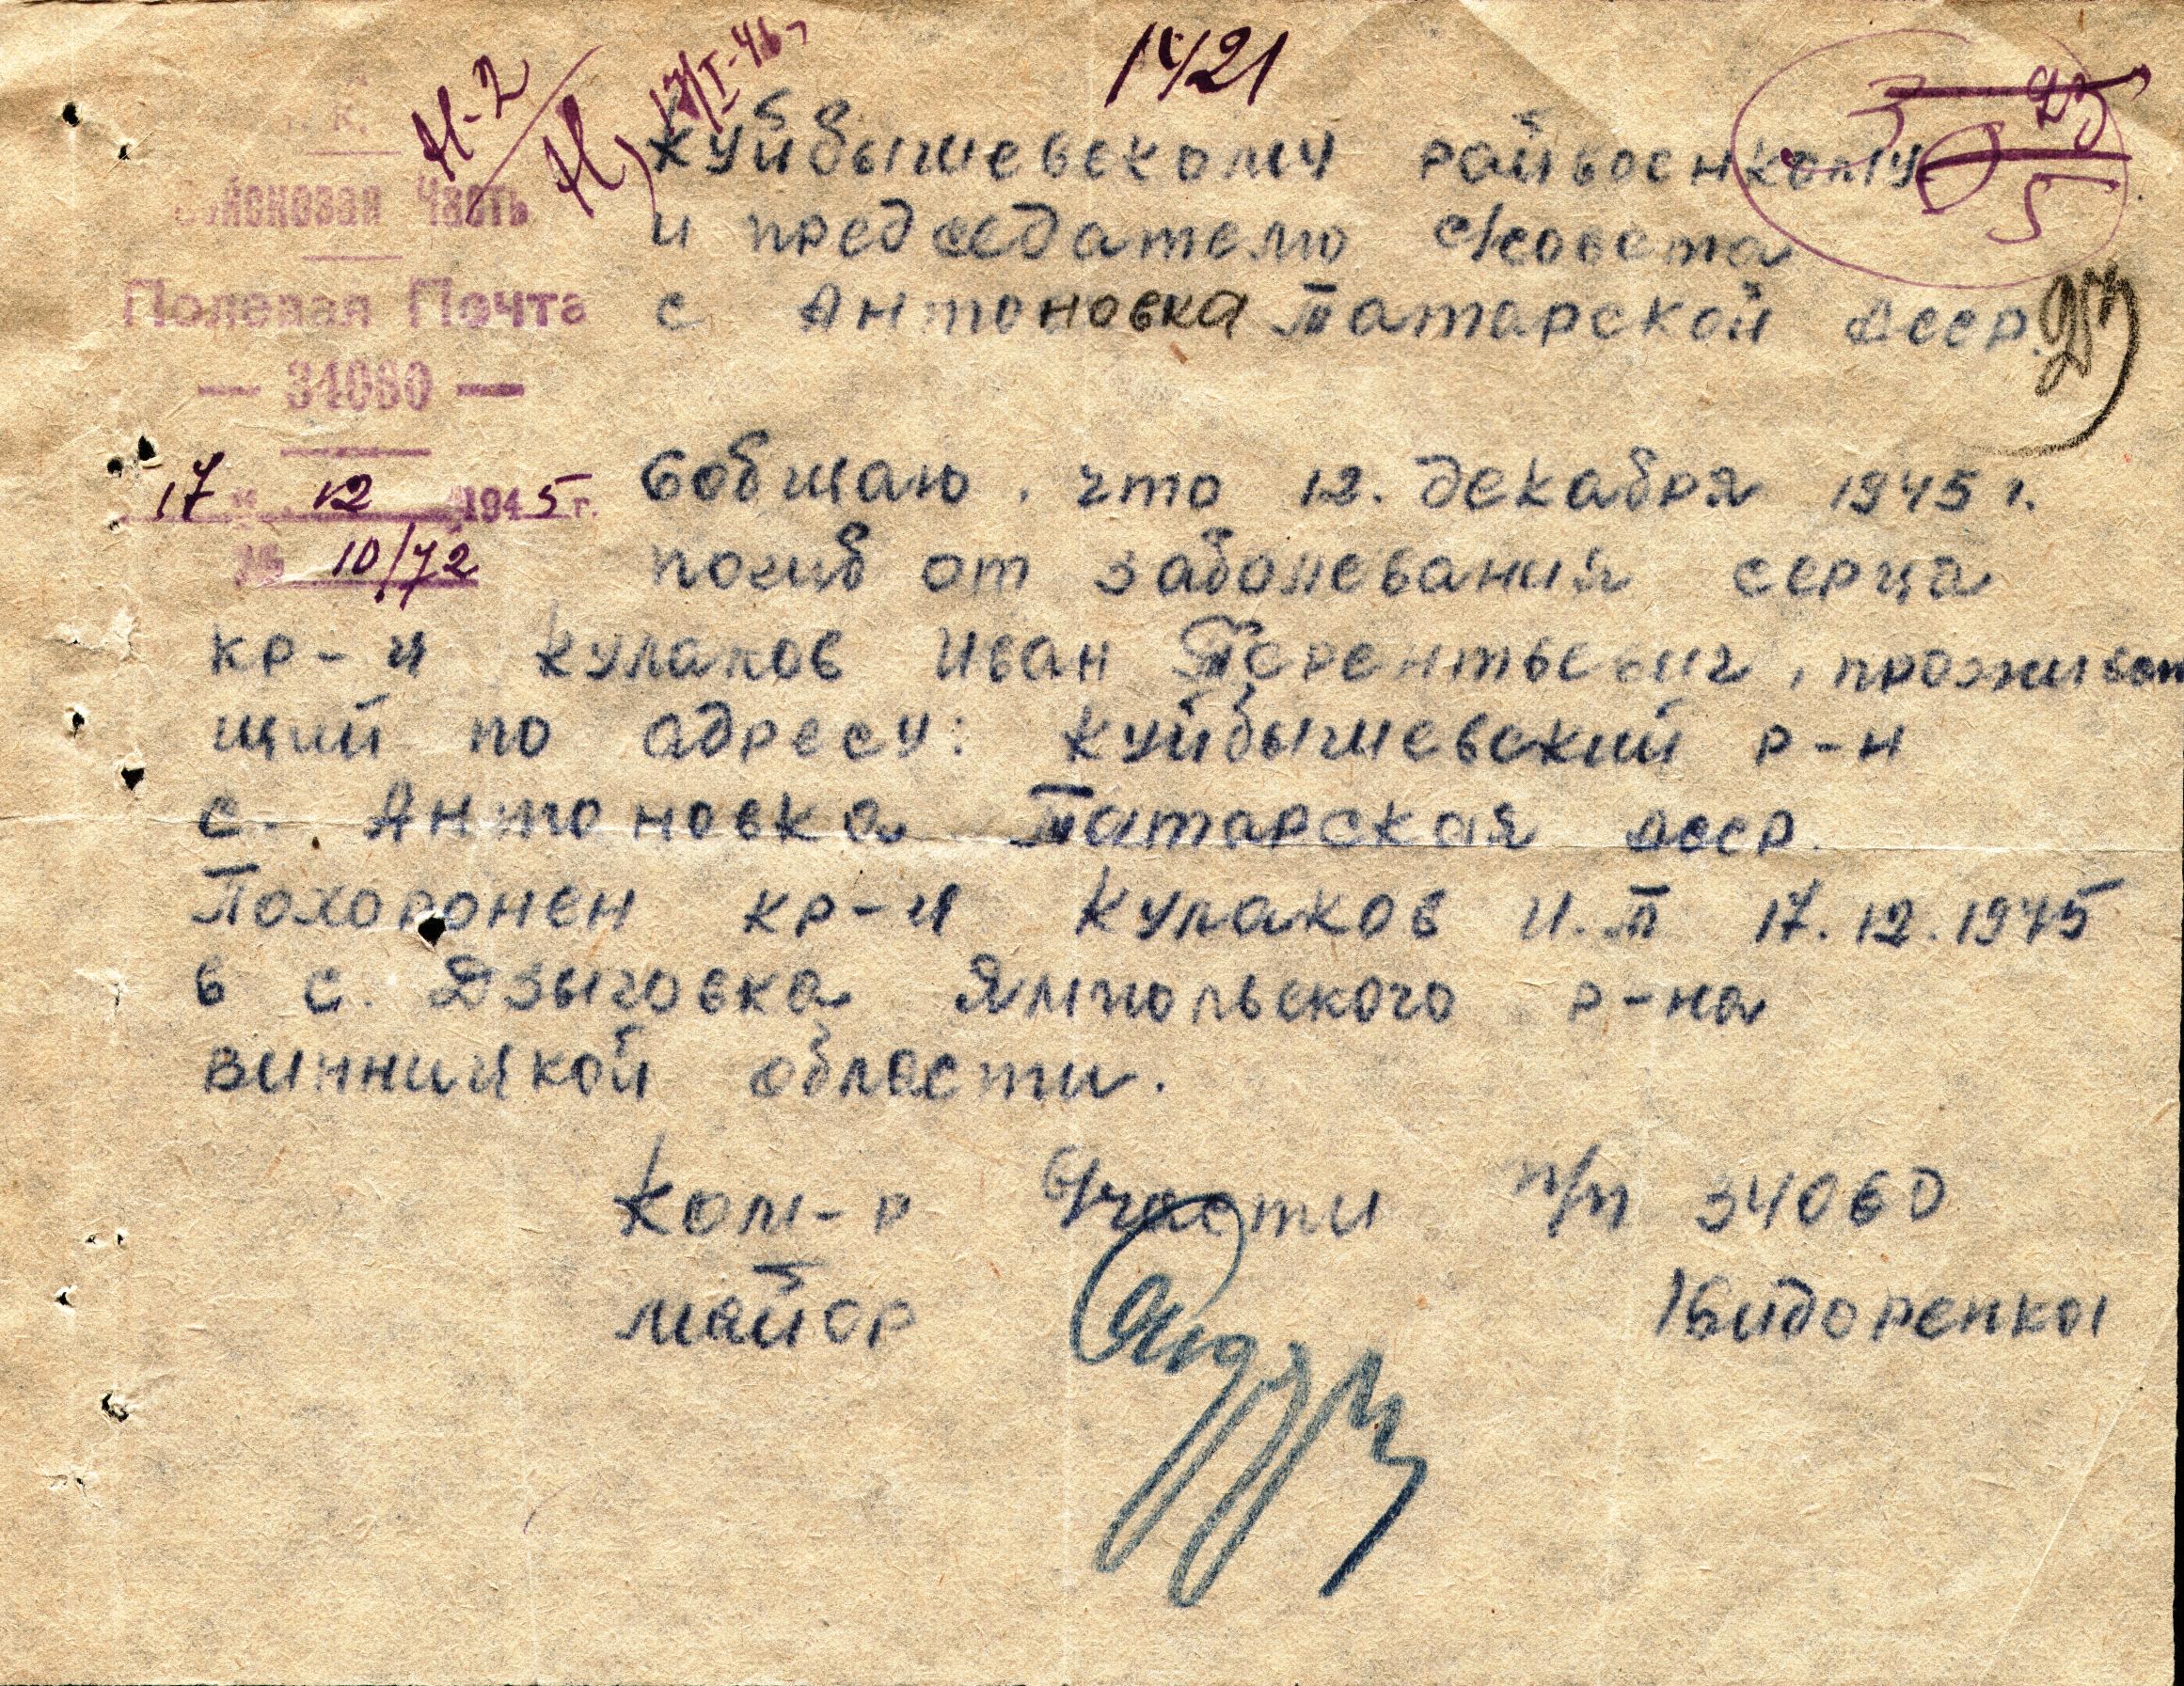 Н-2
17/I-46г
1421
К.
Войсковая Часть
Полевая Почта
— 34060 —
17 " 12 1945 г.
№ 10/72
Куйбышевскому райвоенкому
и председателю с/совета
с Антоновка Татарской АССР.
Собщаю, что 12. декабря 1945 г.
погиб от заболевания серца
кр-ц Кулаков Иван Терентьевич, проживаю
щий по адресу: Куйбышевский р-н
с. Антоновка Татарская АССР.
Похоронен кр-ц Кулаков И.Т 17.12.1945
в с. Дзыговка Ямпольского р-на
Винницкой области.
Ком-р в/части п/п 34060
майор /Сидоренко/